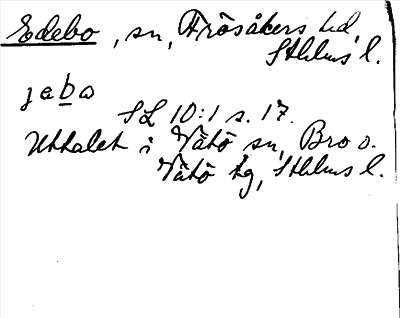 Edebo, sn, Frösåkers hd,
Sthlms l.
jebo
SL 10:1 s. 17.
Uttalet i Vätö sn, Bro o.
Vätö tg, Sthlms l.